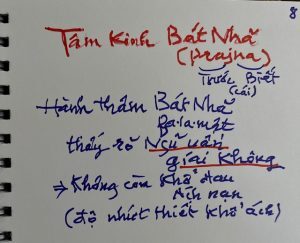 8
Tâm Kinh Bát Nhã
(Prajna)
Trước Biết
(cái)
Hành thâm Bát Nhã
Ba la mật
thấy rõ Ngũ uẩn
giai không
⇒ Không còn khổ đau
Ách nạn
(độ nhứt thiết khổ ách)